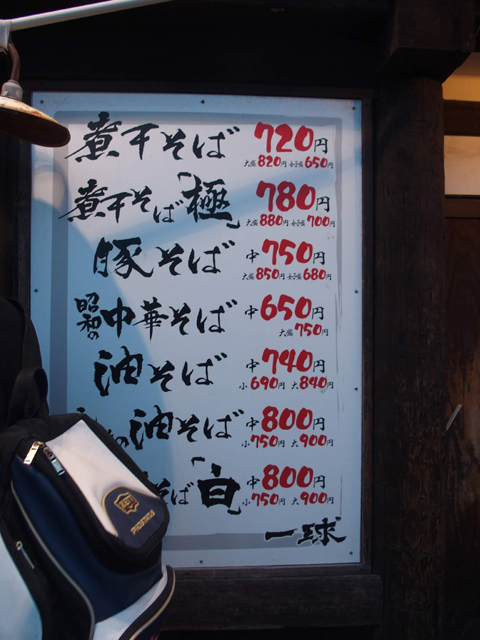 煮干そば 720円
大盛820円 女子盛650円
煮干そば「極」 780円
大盛880円 女子盛700円
豚そば 中750円
大盛850円 女子盛680円
昭和の中華そば 中650円
大盛750円
油そば 中740円
小690円 大840円
の油そば 中800円
小750円 大900円
そば「白」 中800円
小750円 大900円
一球